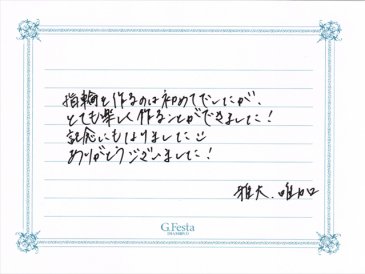 指輪を作るのは初めてでしたが、
とても楽しく作ることができました!
記念にもなりました☺
ありがとうございました!
雅大、唯加
G.Festa
DIAMOND